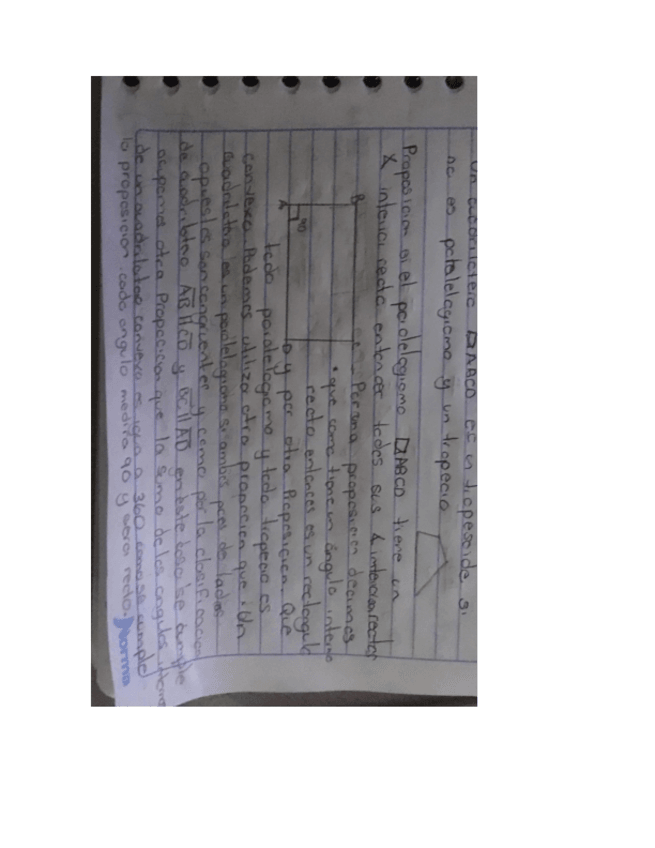 Un cuadrilatero □ABCD es un trapesoide si
no es paralelogramo y un trapecio
Proposicion si el paralelogramo □ABCD tiene un
∡ interior recto entonces todos sus ∡ interiores rectos
B C - Por una proposicion decimos
• que como tiene un ángulo interno
90 recto entonces es un rectangulo
A D y por otra Proposicion. Que
todo paralelogramo y todo trapecio es
convexo. Podemos utilizar otra proposicion que. Un
cuadrilatero es un paralelogramo si ambos pares de lados
opuestos son congruentes y como por la clasificacion
de cuadrilatero AB||CD y BC||AD en este caso se cumple
ocupamos otra Proposicion que la suma de los angulos internos
de un cuadrilatero convexo es igual a 360 como se cumple
la proposicion. cada angulo medira 90 y sera recto.
Norma